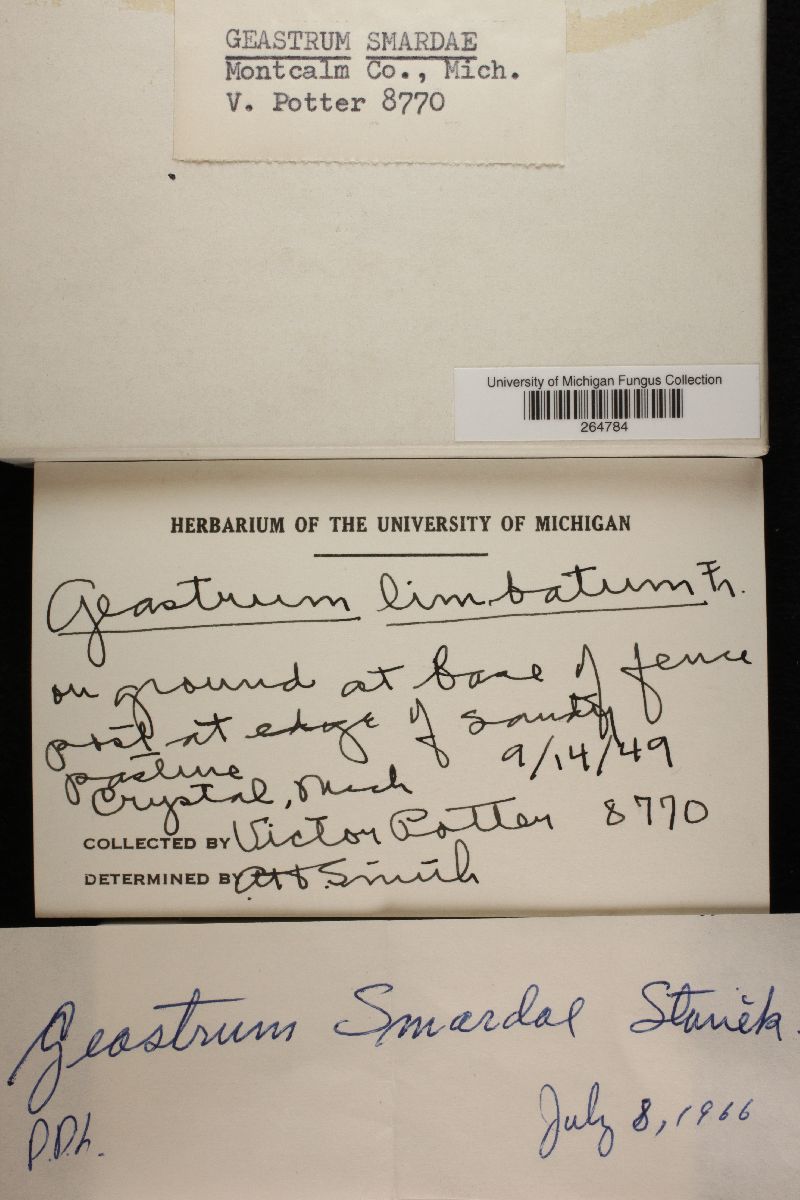 GEASTRUM SMARDAE
Montcalm Co., Mich.
V. Potter 8770
University of Michigan Fungus Collection
264784
HERBARIUM OF THE UNIVERSITY OF MICHIGAN
Geastrum limbatum Fr.
on ground at base of fence
post at edge of sandy
pasture
Crystal, Mich 9/14/49
COLLECTED BY Victor Potter 8770
DETERMINED BY A.H. Smith
Geastrum Smardae Staněk.
D.D.L. July 8, 1966